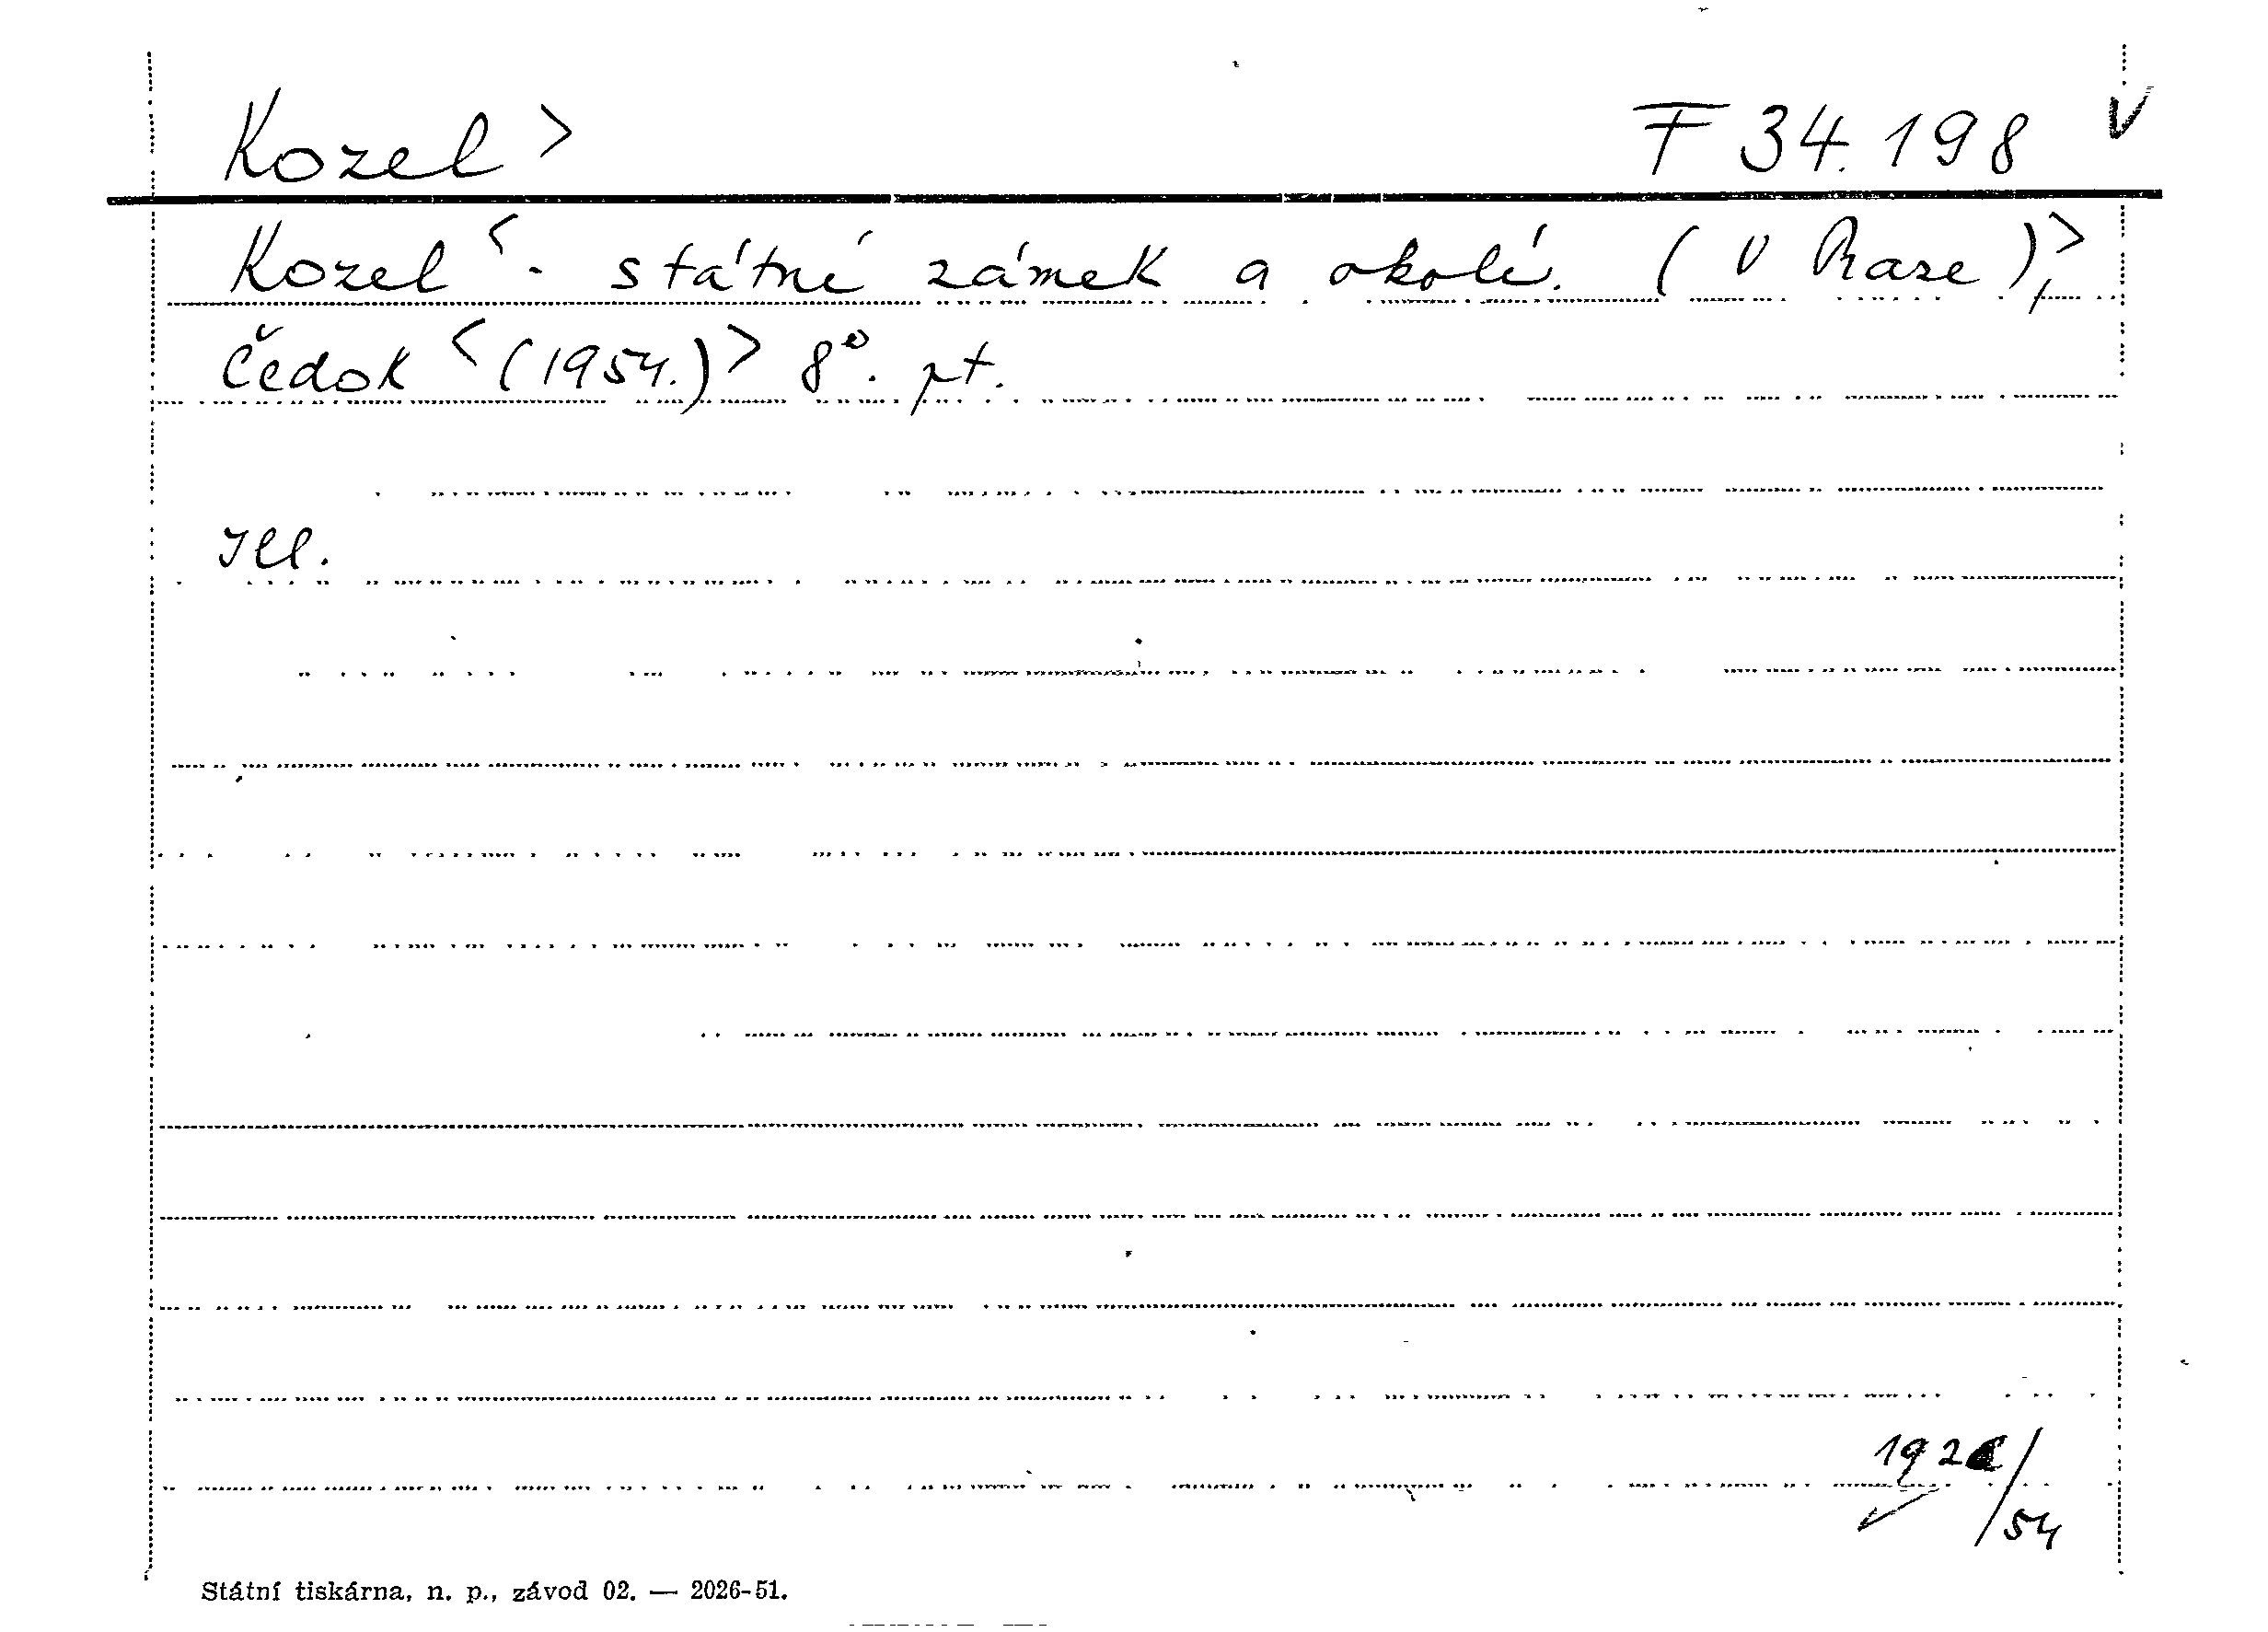 Kozel > F 34.198 V
Kozel < - státní zámek a okolí. (V Praze), >
Čedok < (1954.) > 8°. pt.
Ill.
/54
Státní tiskárna, n. p., závod 02. — 2026-51.